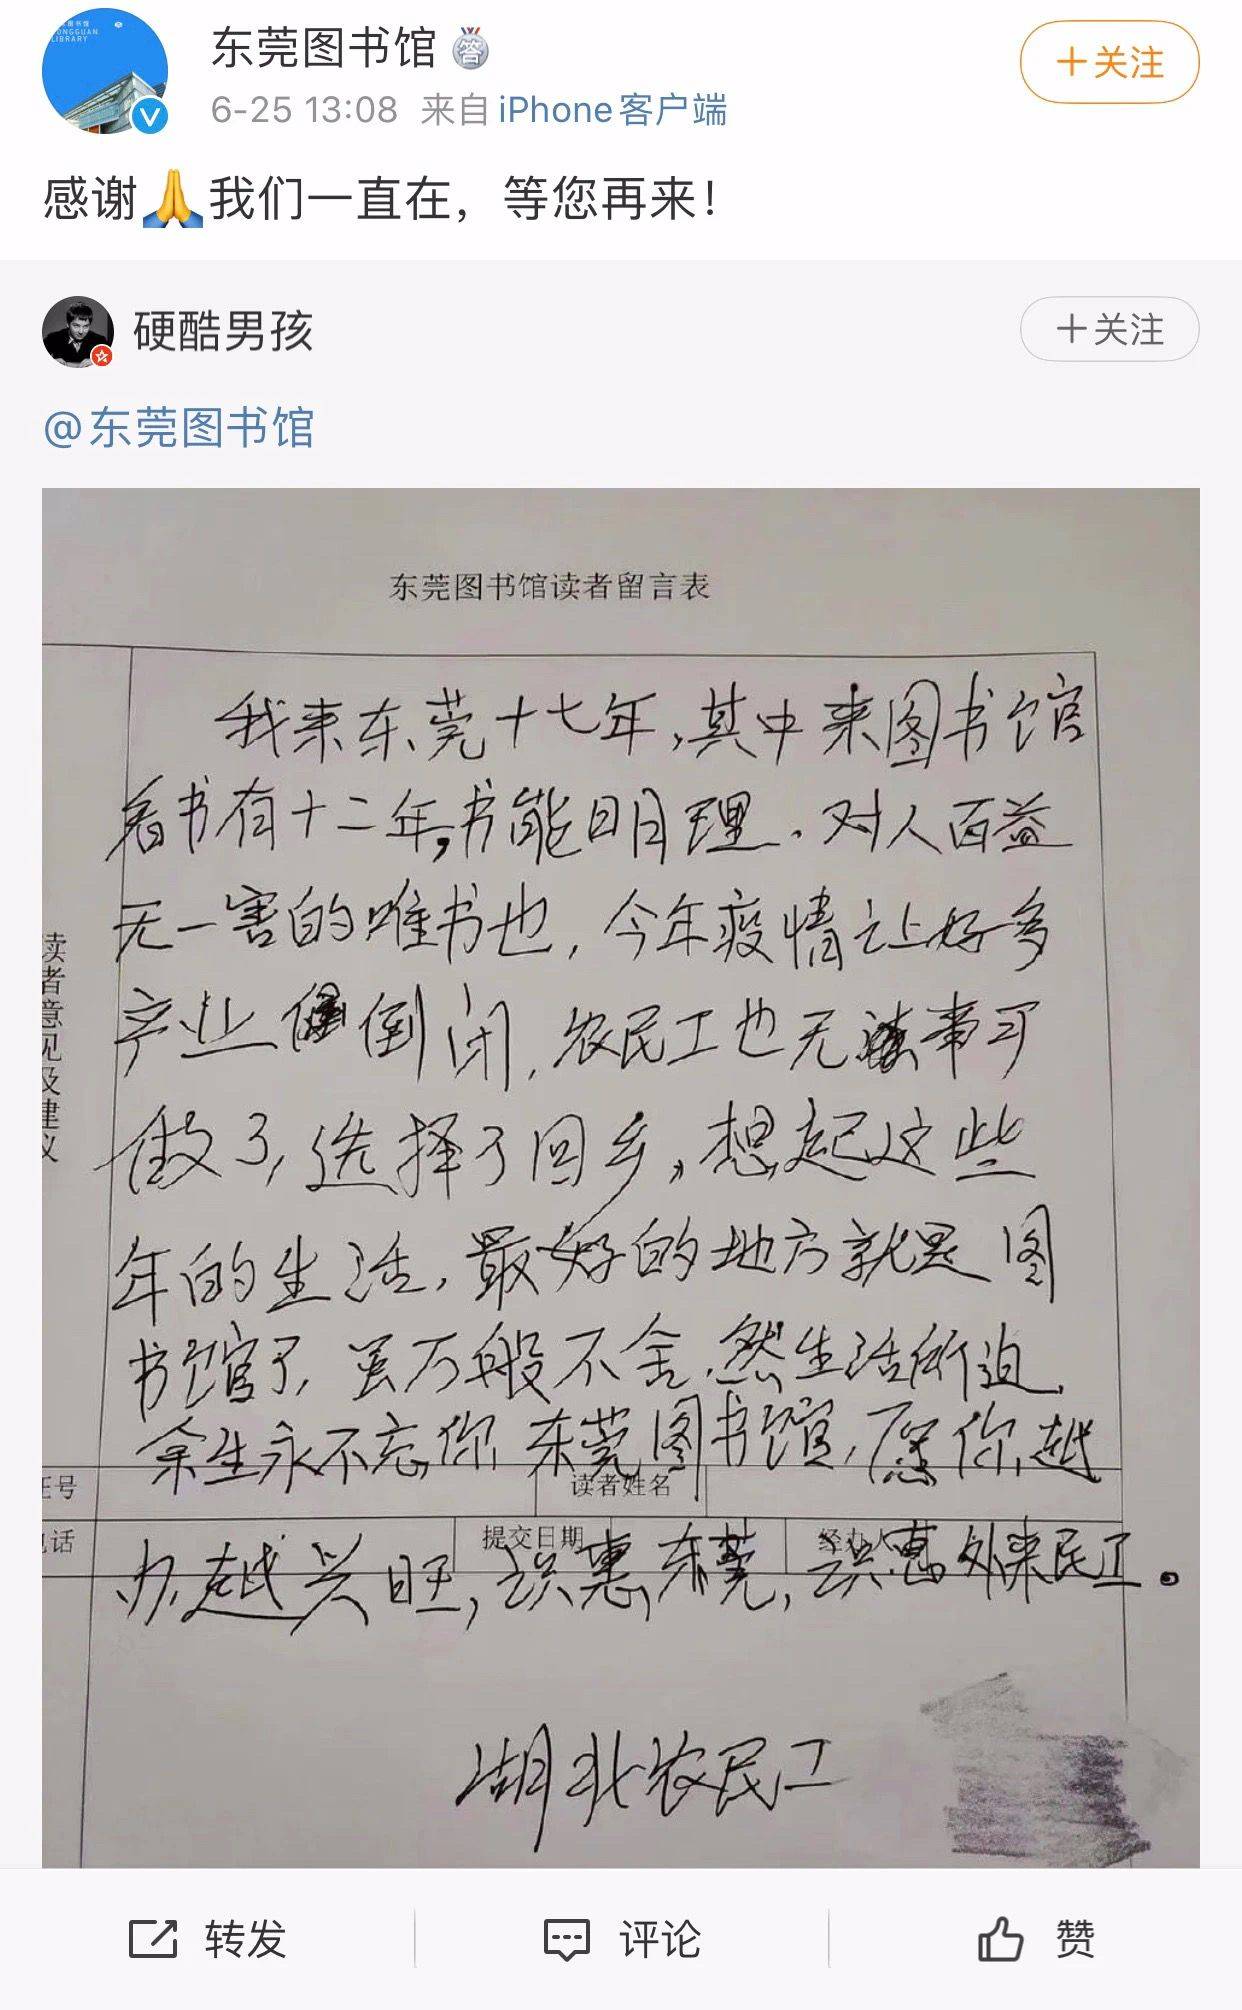 东莞图书馆
6-25 13:08 来自 iPhone客户端
+关注
感谢🙏我们一直在，等您再来！
硬酷男孩
+关注
@东莞图书馆
东莞图书馆读者留言表
我来东莞十七年，其中来图书馆
看书有十二年，书能明理，对人百益
无一害的唯书也，今年疫情让好多
产业倒闭，农民工也无事可
做了，选择了回乡，想起这些
年的生活，最好的地方就是图
书馆了，虽万般不舍，然生活所迫，
余生永不忘你，东莞图书馆，愿你越
办越兴旺，识惠东莞，识惠外来民工。
湖北农民工
读者意见及建议
证号
读者姓名
电话
提交日期
经办人
转发
评论
赞